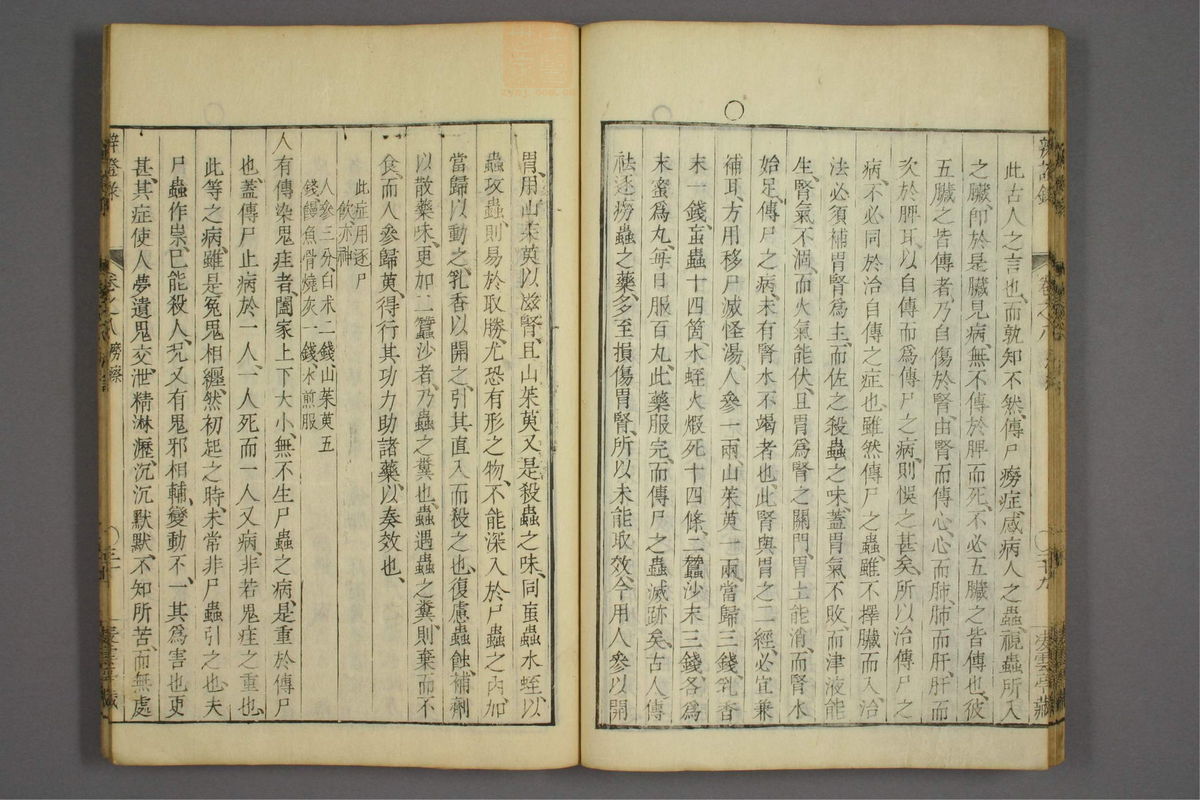 此古人之言也、而孰知不然、傳尸癆症、感病人之蟲、視蟲所入
之臟、卽於是臟見病、無不傳於脾而死、不必五臟之皆傳也、彼
五臟之皆傳者、乃自傷於腎、由腎而傳心、心而肺、肺而肝、肝而
次於脾耳、以自傳而爲傳尸之病、則悞之甚矣、所以治傳尸之
病、不必同於治自傳之症也、雖然傳尸之蟲、雖不擇臟而入、治
法必須補胃腎爲主、而佐之殺蟲之味、蓋胃氣不敗、而津液能
生、腎氣不涸、而火氣能伏、且胃爲腎之關門、胃土能消、而腎水
始足、傳尸之病、未有腎水不竭者也、此腎與胃之二經、必宜兼
補耳、方用移尸滅怪湯、人參一兩、山茱萸一兩、當歸三錢、乳香
末一錢、䖟蟲十四箇、水蛭火煅死十四條、二蠶沙末三錢、各爲
末、蜜爲丸、每日服百丸、此藥服完、而傳尸之蟲滅跡矣、古人傳
祛逐癆蟲之藥、多至損傷胃腎、所以未能取效、今用人參以開
胃、用山茱萸以滋腎、且山茱萸又是殺蟲之味、同䖟蟲水蛭、以
蟲攻蟲、則易於取勝、尤恐有形之物、不能深入於尸蟲之內、加
當歸以動之、乳香以開之、引其直入而殺之也、復慮蟲蝕補劑
以散藥味、更加二蠶沙者、乃蟲之糞也、蟲遇蟲之糞、則棄而不
食、而人參歸萸、得行其功力、助諸藥以奏效也、
此症用逐尸
飲亦神
人參三分、白术二錢、山茱萸五
錢、鰻魚骨燒灰一錢、水煎服
人有傳染鬼疰者、闔家上下大小、無不生尸蟲之病、是重於傳尸
也、蓋傳尸止病於一人、一人死而一人又病、非若鬼疰之重也、
此等之病、雖是冤鬼相纏、然初起之時、未常非尸蟲引之也、夫
尸蟲作祟、已能殺人、況又有鬼邪相輔、變動不一、其爲害也更
甚、其症使人夢遺鬼交、泄精淋瀝、沉沉默默、不知所苦、而無處
辨證錄
卷之八
凌雲亭藏